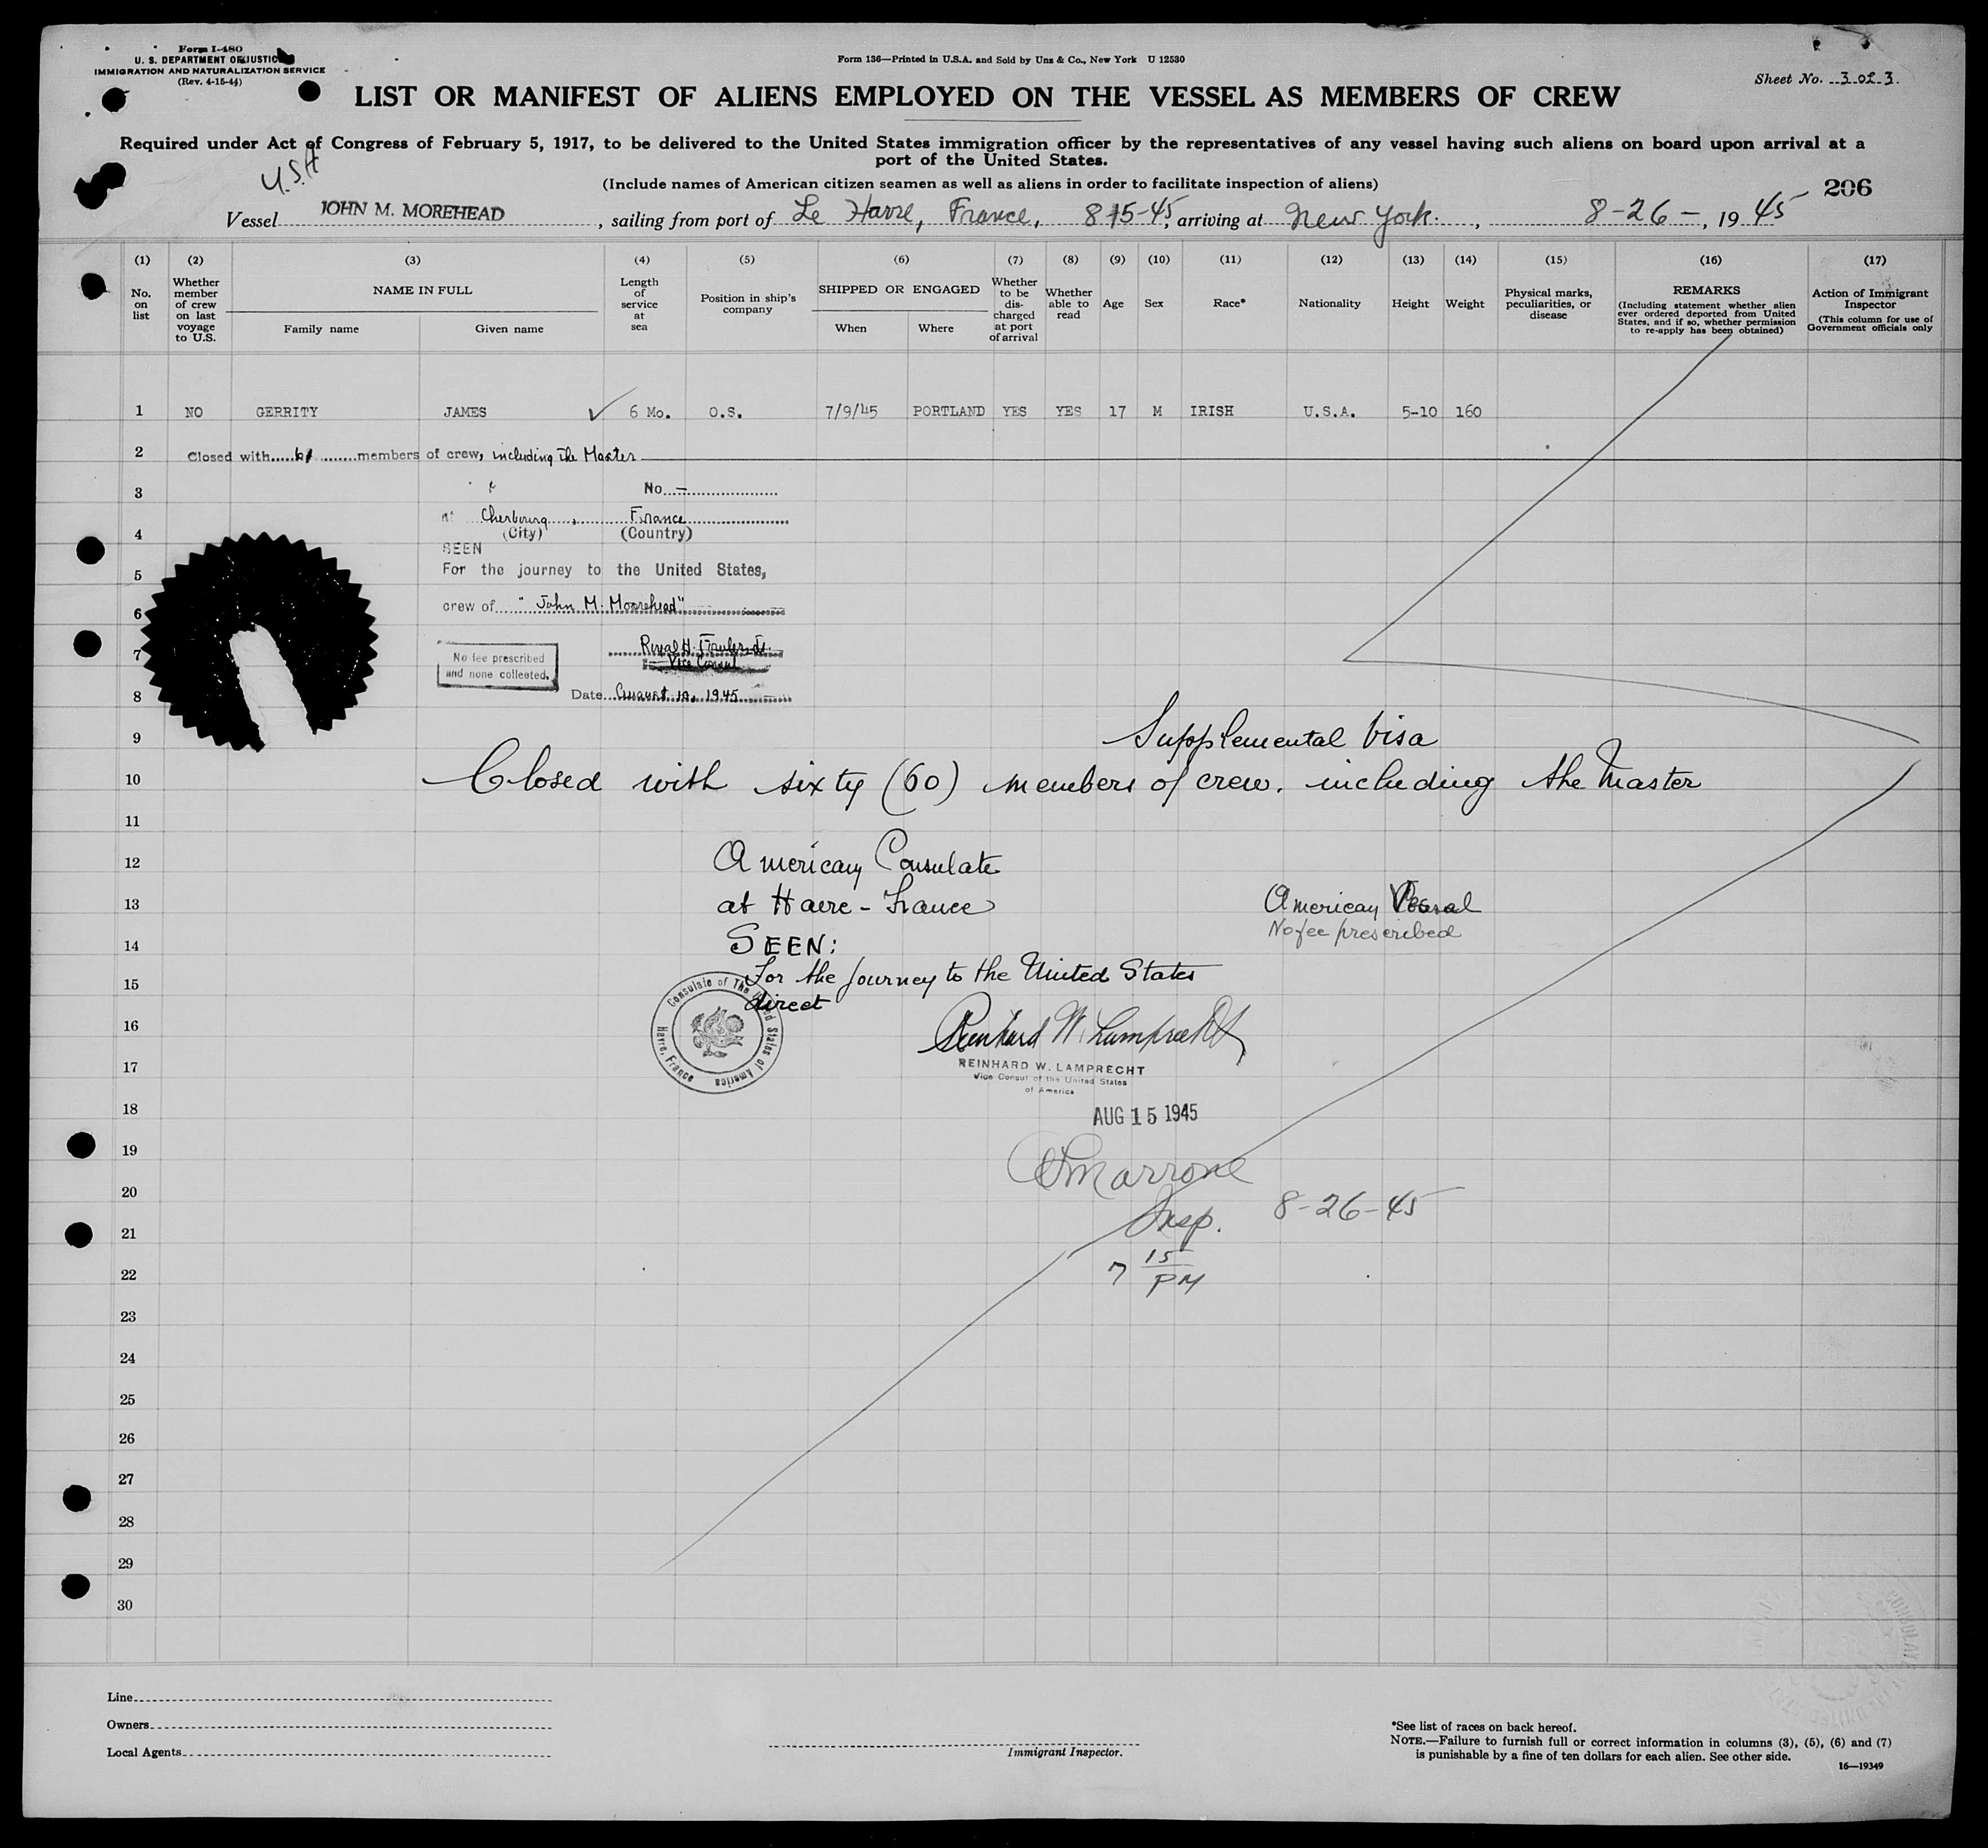 Form I-480
U. S. DEPARTMENT OF JUSTICE
IMMIGRATION AND NATURALIZATION SERVICE
(Rev. 4-15-44)
Form 136—Printed in U.S.A. and Sold by Unz & Co., New York U 12530
Sheet No. 3 of 3.
LIST OR MANIFEST OF ALIENS EMPLOYED ON THE VESSEL AS MEMBERS OF CREW
Required under Act of Congress of February 5, 1917, to be delivered to the United States immigration officer by the representatives of any vessel having such aliens on board upon arrival at a
port of the United States.
U.S.A
(Include names of American citizen seamen as well as aliens in order to facilitate inspection of aliens)
206
Vessel JOHN M. MOREHEAD, sailing from port of Le Havre, France, 8-15-45, arriving at New York., 8-26-, 19 45
(1) (2) (3) (4) (5) (6) (7) (8) (9) (10) (11) (12) (13) (14) (15) (16) (17)
No. on list
Whether member of crew on last voyage to U.S.
NAME IN FULL
Family name
Given name
Length of service at sea
Position in ship's company
SHIPPED OR ENGAGED
When
Where
Whether to be discharged at port of arrival
Whether able to read
Age
Sex
Race*
Nationality
Height
Weight
Physical marks, peculiarities, or disease
REMARKS
(Including statement whether alien ever ordered deported from United States, and if so, whether permission to re-apply has been obtained)
Action of Immigrant Inspector
(This column for use of Government officials only
1 NO GERRITY JAMES ✓ 6 Mo. O.S. 7/9/45 PORTLAND YES YES 17 M IRISH U.S.A. 5-10 160
2 Closed with 61 members of crew, including the Master
3 No. —
at Cherbourg, France
4 (City) (Country)
SEEN
5 For the journey to the United States,
6 crew of "John M. Moorehead"
7 No fee prescribed
and none collected.
Vice Consul
8 Date August 10, 1945
9 Supplemental Visa
10 Closed with sixty (60) members of crew. including the Master
11
12 American Consulate
13 at Havre - France American Vessel
No fee prescribed
14 SEEN:
15 For the journey to the United States
direct
Consulate of The United States of America
Havre, France
16 Reinhard W. Lamprecht
17 REINHARD W. LAMPRECHT
Vice Consul of the United States
of America
18 AUG 15 1945
19 Marrone
20
21 Insp. 8-26-45
22 7 15 PM
23
24
25
26
27
28
29
30
Line
Owners
Local Agents
Immigrant Inspector.
*See list of races on back hereof.
NOTE.—Failure to furnish full or correct information in columns (3), (5), (6) and (7)
is punishable by a fine of ten dollars for each alien. See other side.
16—19349